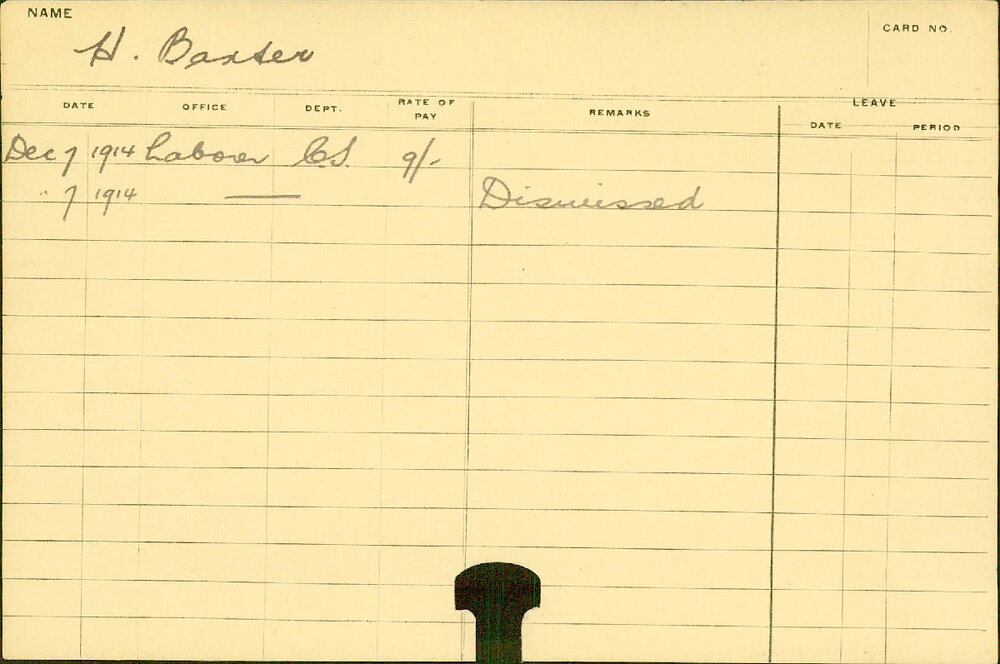 NAME
CARD NO.
H. Baxter
DATE OFFICE DEPT. RATE OF PAY REMARKS LEAVE
DATE PERIOD
Dec 7 1914 Laborer C.S. 9/-
" 7 1914 — Dismissed